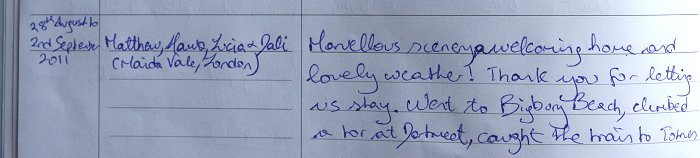 28th August to
2nd September
2011
Matthew, Hawa, Zicia & Dali
(Maida Vale, London)
Marvellous scenery, a welcoming home and
lovely weather! Thank you for letting
us stay. Went to Bigbury Beach, climbed
a tor at Dartmeet, caught the train to Totnes